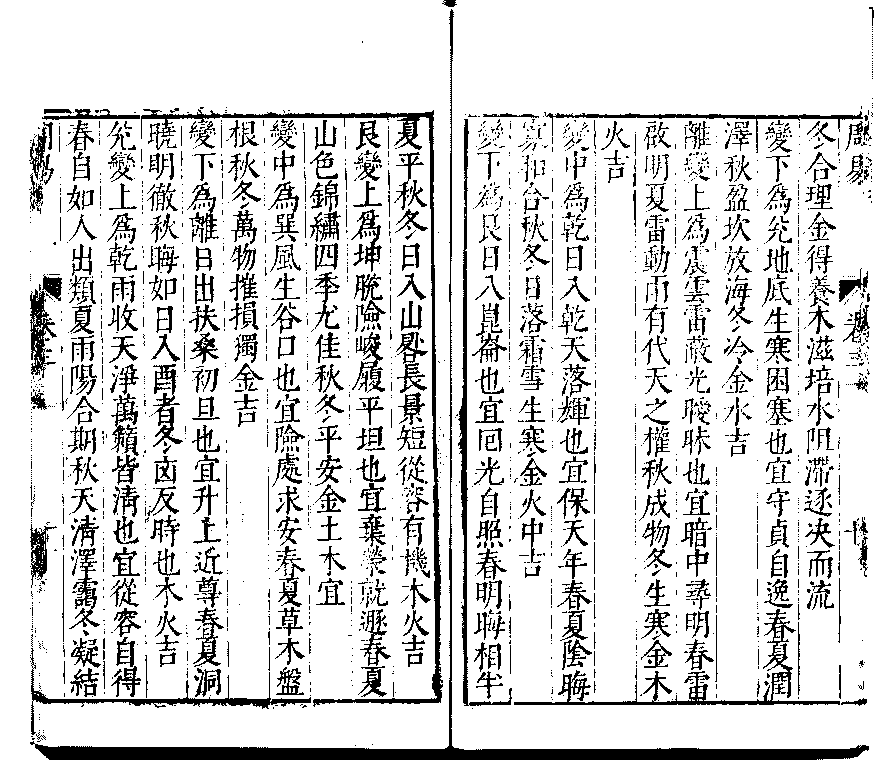 周易
卷三
十
冬合理金得養木滋培水阻滯逐決而流
變下爲兌地底生寒困塞也宜守貞自逸春夏潤
澤秋盈坎放海冬冷金水吉
離變上爲震雲雷蔽光曖昧也宜暗中尋明春雷
啟明夏雷動雨有代天之權秋成物冬生寒金木
火吉
變中爲乾日入乾天落輝也宜保天年春夏陰晦
寡和合秋冬日落霜雪生寒金火中吉
變下爲艮日入崑崙也宜回光自照春明晦相半
夏平秋冬日入山晷長景短從容有機木火吉
艮變上爲坤脫險峻履平坦也宜棄榮就遜春夏
山色錦繡四季尤佳秋冬平安金土木宜
變中爲巽風生谷口也宜險處求安春夏草木盤
根秋冬萬物摧損獨金吉
變下爲離日出扶桑初旦也宜升上近尊春夏洞
曉明徹秋晦如日入酉者冬卤反時也木火吉
兌變上爲乾雨收天淨萬籟皆清也宜從容自得
春自如人出類夏雨陽合期秋天清澤靄冬凝結
周易
卷三